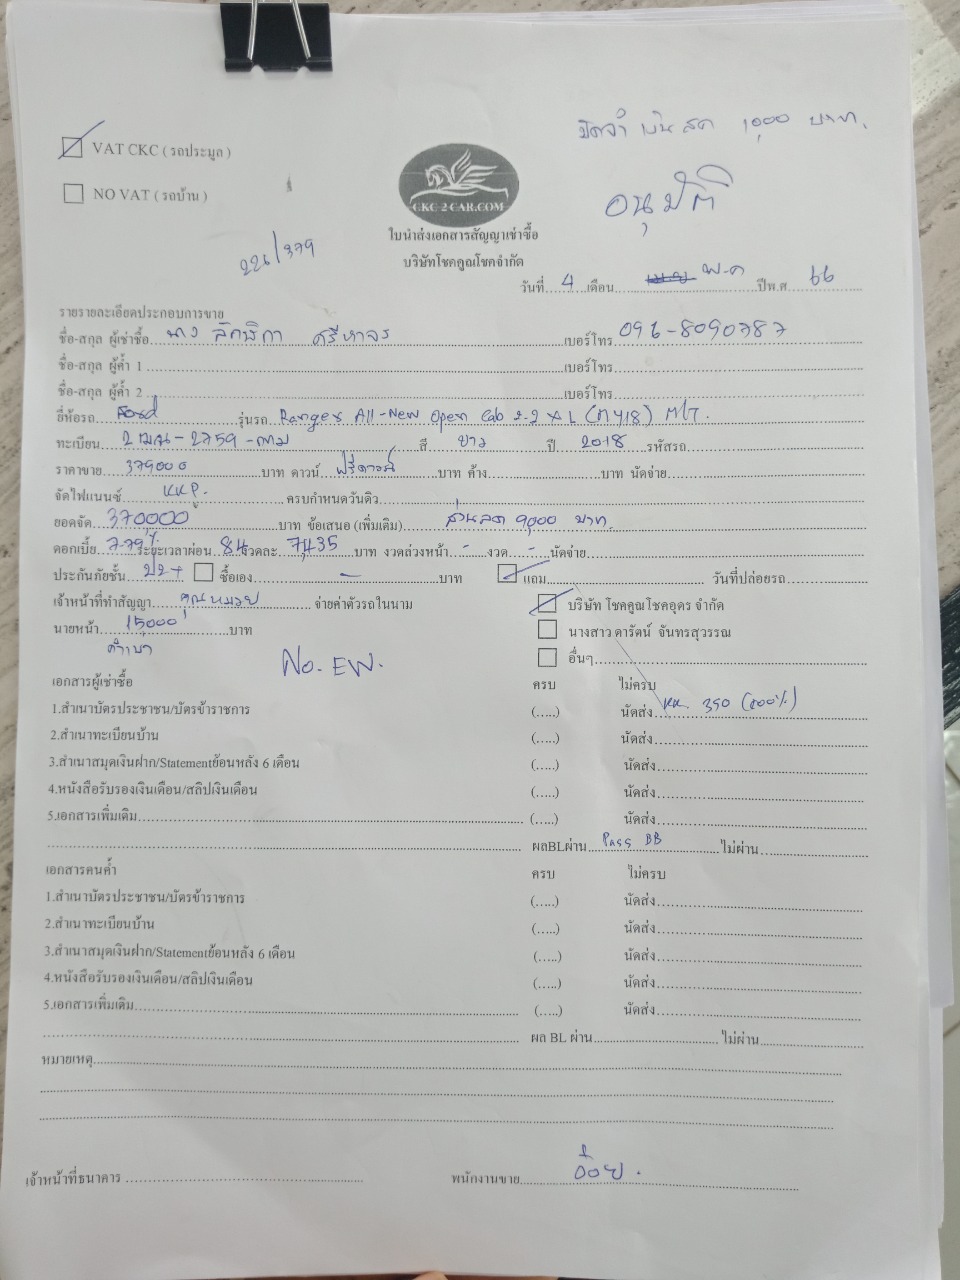 มัดจำ เงินสด 1,000 บาท.
VAT CKC ( รถประมูล )
NO VAT ( รถบ้าน )
CKC-2-CAR.COM
อนุมัติ
226/379
ใบนำส่งเอกสารสัญญาเช่าซื้อ
บริษัทโชคคูณโชคจำกัด
วันที่ 4 เดือน พ.ค ปีพ.ศ. 66
รายรายละเอียดประกอบการขาย
ชื่อ-สกุล ผู้เช่าซื้อ นาง ลักษิกา ศรีหาจร เบอร์โทร 096-8090787
ชื่อ-สกุล ผู้ค้ำ 1 เบอร์โทร
ชื่อ-สกุล ผู้ค้ำ 2 เบอร์โทร
ยี่ห้อรถ Ford รุ่นรถ Ranger All-New Open Cab 2.2 XL (MY18) M/T.
ทะเบียน 2ฒฌ-2759-กทม สี ขาว ปี 2018 รหัสรถ
ราคาขาย 379000 บาท ดาวน์ ฟรีดาวน์ บาท ค้าง บาท นัดจ่าย
จัดไฟแนนซ์ KKP. ครบกำหนดวันดิว
ยอดจัด 370,000 บาท ข้อเสนอ (เพิ่มเติม) ส่วนลด 9,000 บาท.
ดอกเบี้ย 7.79% ระยะเวลาผ่อน 84 งวดละ 7,435 บาท งวดล่วงหน้า - งวด - นัดจ่าย
ประกันภัยชั้น ป2+ ซื้อเอง - บาท แถม วันที่ปล่อยรถ
เจ้าหน้าที่ทำสัญญา คุณหมวย จ่ายค่าตัวรถในนาม บริษัท โชคคูณโชคอุดร จำกัด
นายหน้า 15000 บาท นางสาว ดารัตน์ จันทรสุวรรณ
No. EW. อื่นๆ
เอกสารผู้เช่าซื้อ ครบ ไม่ครบ
1.สำเนาบัตรประชาชน/บัตรข้าราชการ (.....) นัดส่ง KK. 350 (100%)
2.สำเนาทะเบียนบ้าน (.....) นัดส่ง
3.สำเนาสมุดเงินฝาก/Statementย้อนหลัง 6 เดือน (.....) นัดส่ง
4.หนังสือรับรองเงินเดือน/สลิปเงินเดือน (.....) นัดส่ง
5.เอกสารเพิ่มเติม (.....) นัดส่ง
ผลBLผ่าน Pass BB ไม่ผ่าน
เอกสารคนค้ำ ครบ ไม่ครบ
1.สำเนาบัตรประชาชน/บัตรข้าราชการ (.....) นัดส่ง
2.สำเนาทะเบียนบ้าน (.....) นัดส่ง
3.สำเนาสมุดเงินฝาก/Statementย้อนหลัง 6 เดือน (.....) นัดส่ง
4.หนังสือรับรองเงินเดือน/สลิปเงินเดือน (.....) นัดส่ง
5.เอกสารเพิ่มเติม (.....) นัดส่ง
ผล BL ผ่าน ไม่ผ่าน
หมายเหตุ
เจ้าหน้าที่ธนาคาร พนักงานขาย อ้อย.